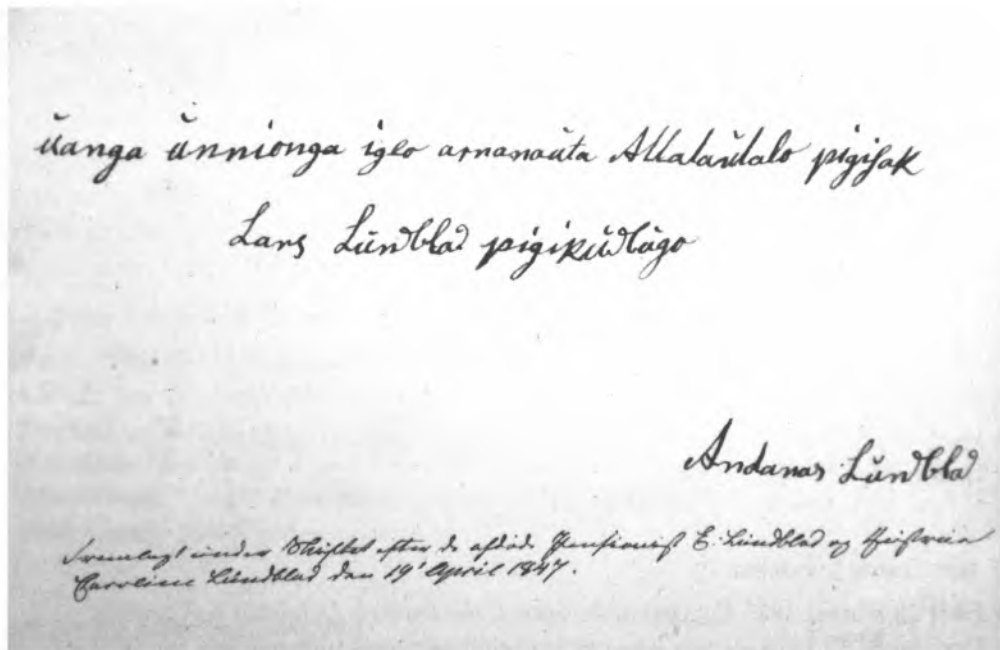 ŭanga ŭnnionga iglo arnanaŭta Allataŭtalo pigisak
Lars Lŭndblad pigikŭdlŭgo
Andanas Lŭndblad
Fremlagt under Skiftet efter de afdøde Pensionist E. Lŭndblad og Hustrue
Caroline Lŭndblad den 19' April 1847.